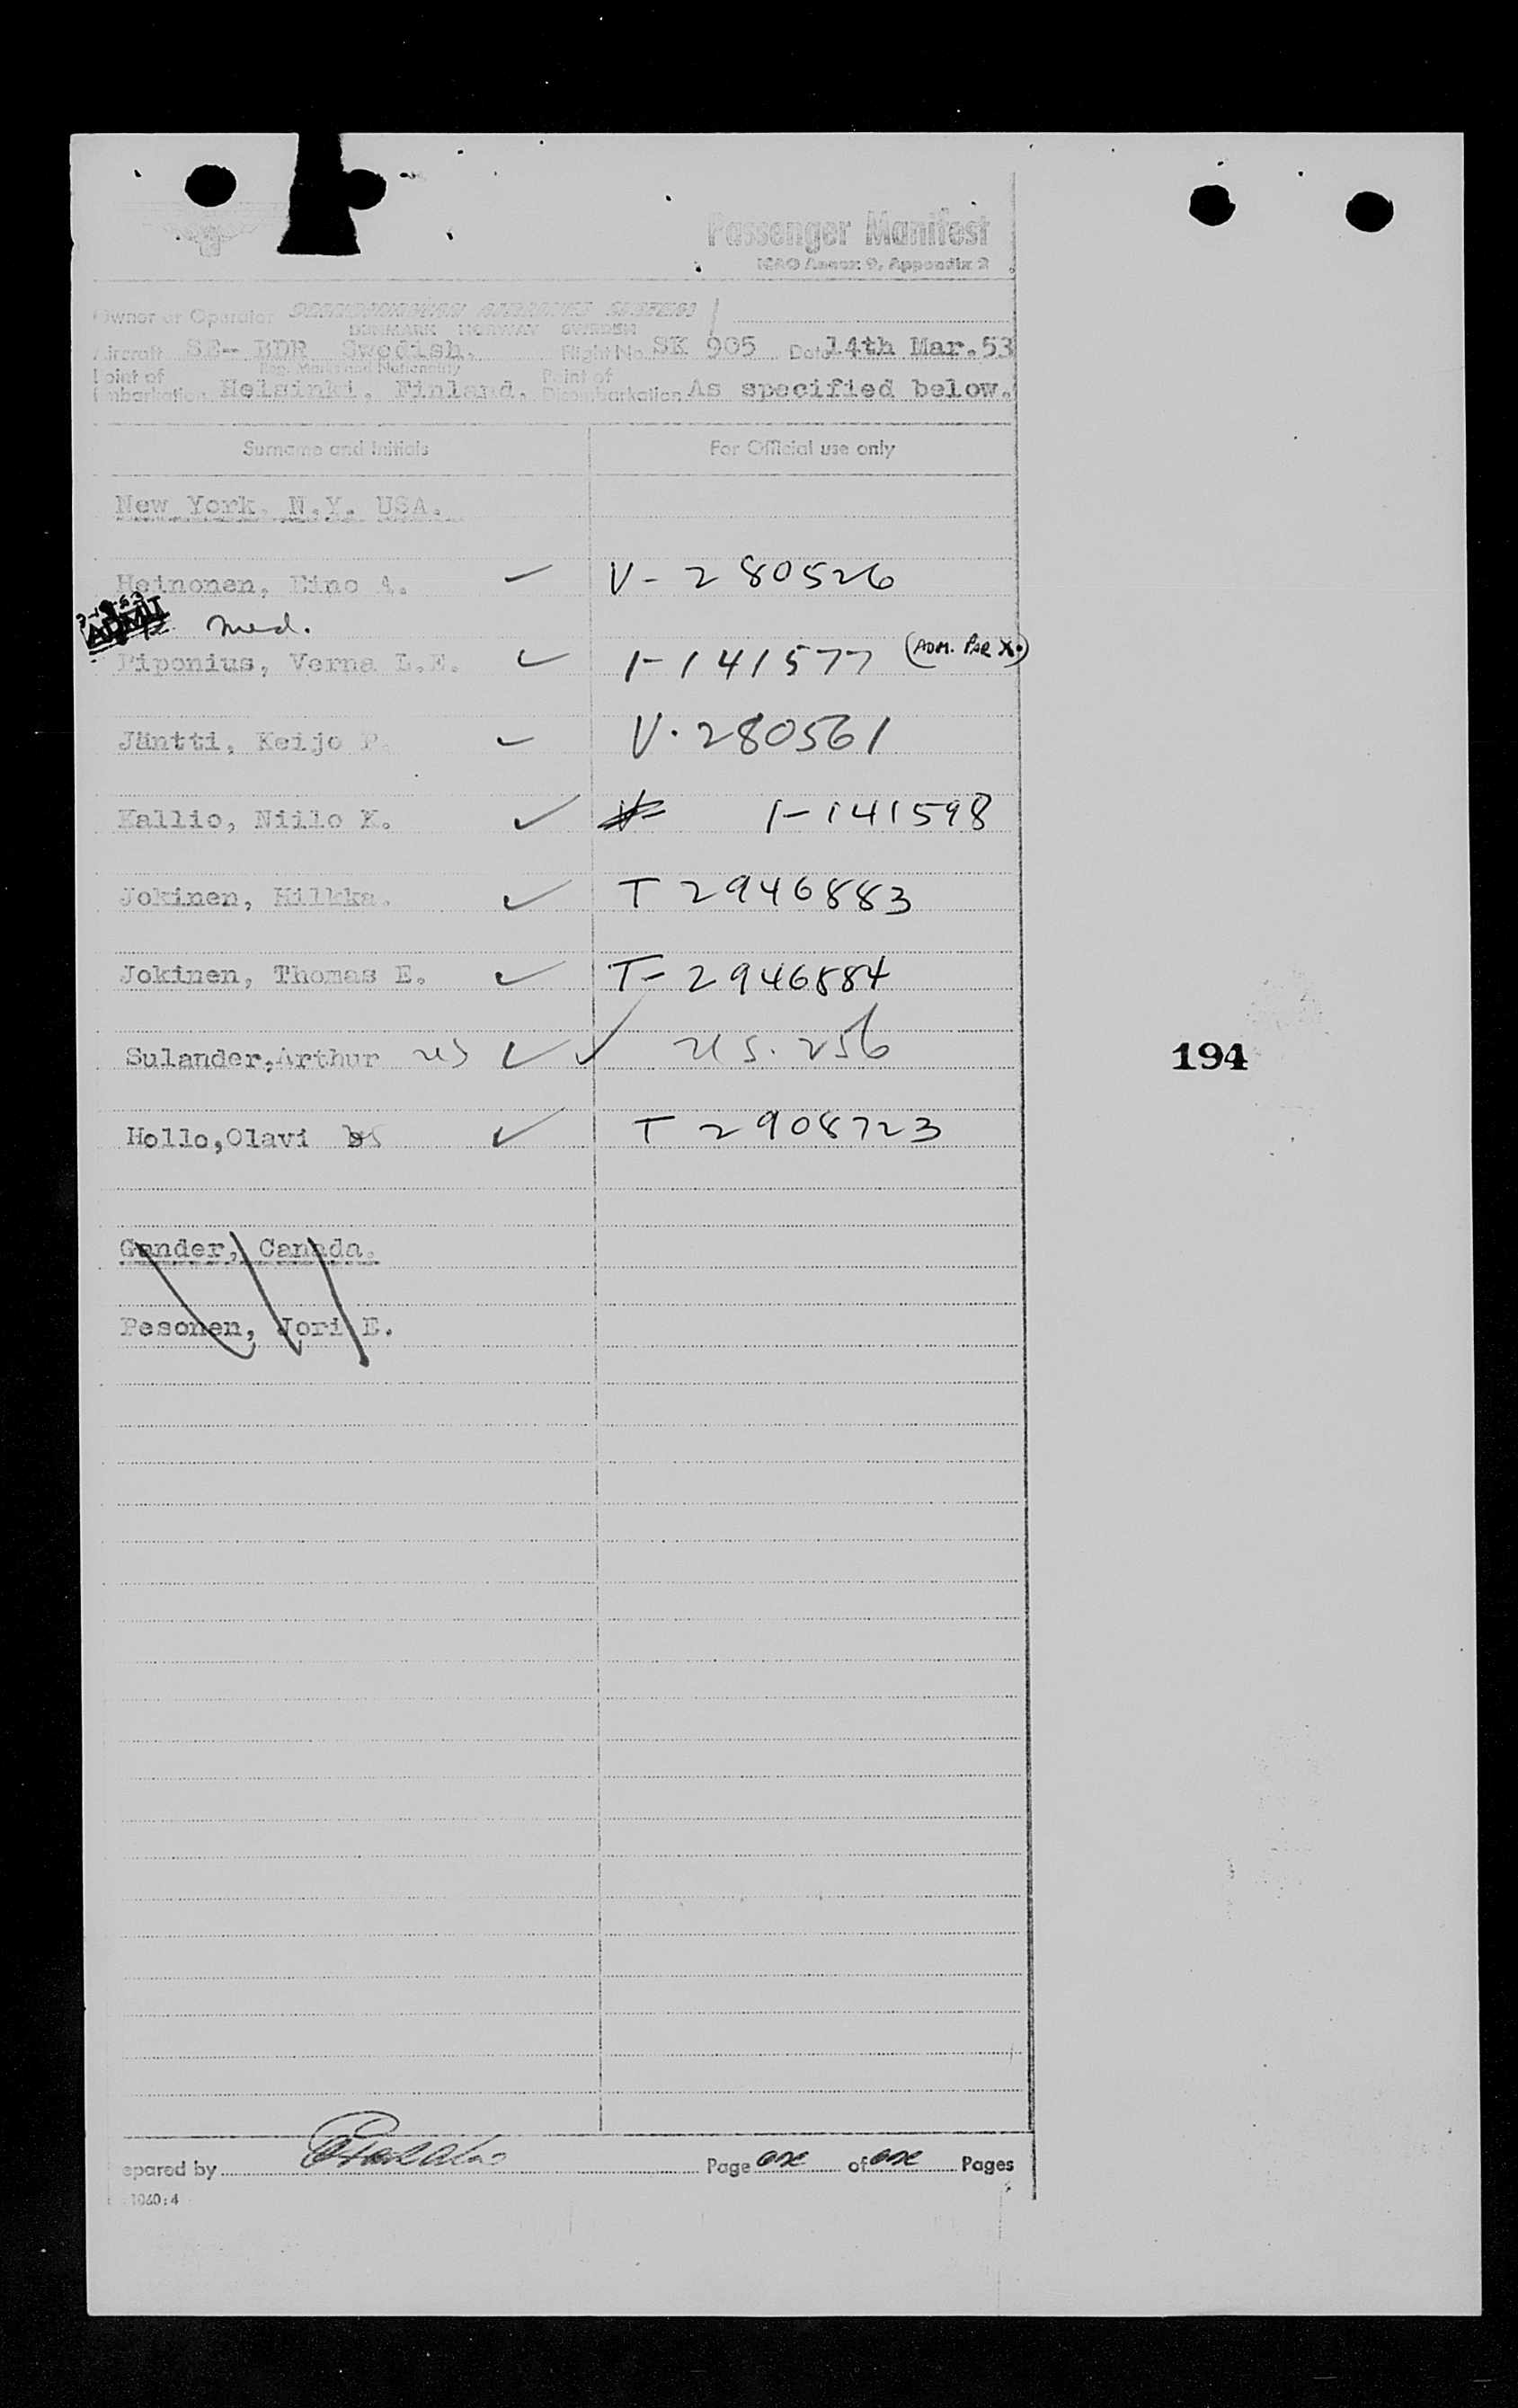 Passenger Manifest
ICAO Annex 9, Appendix 2
Owner or Operator SCANDINAVIAN AIRLINES SYSTEM
DENMARK NORWAY SWEDEN
Aircraft SE-- BDR Swedish. Flight No. SK 905 Date 14th Mar. 53
Reg. Marks and Nationality
Point of Embarkation Helsinki, Finland. Point of Disembarkation As specified below.
Surname and Initials For Official use only
New York. N.Y. USA.
Heinonen, Eino A. V- 280526
ADMIT med.
Piponius, Verna L.E. 1-141577 (ADM. PAR X.)
Jäntti, Keijo P. V. 280561
Kallio, Niilo K. 1-141598
Jokinen, Hilkka. T 2946883
Jokinen, Thomas E. T- 2946884
Sulander,Arthur US US. 256
194
Hollo,Olavi T 2908723
Gander, Canada.
Pesonen, Jori E.
epared by Page one of one Pages
1060:4